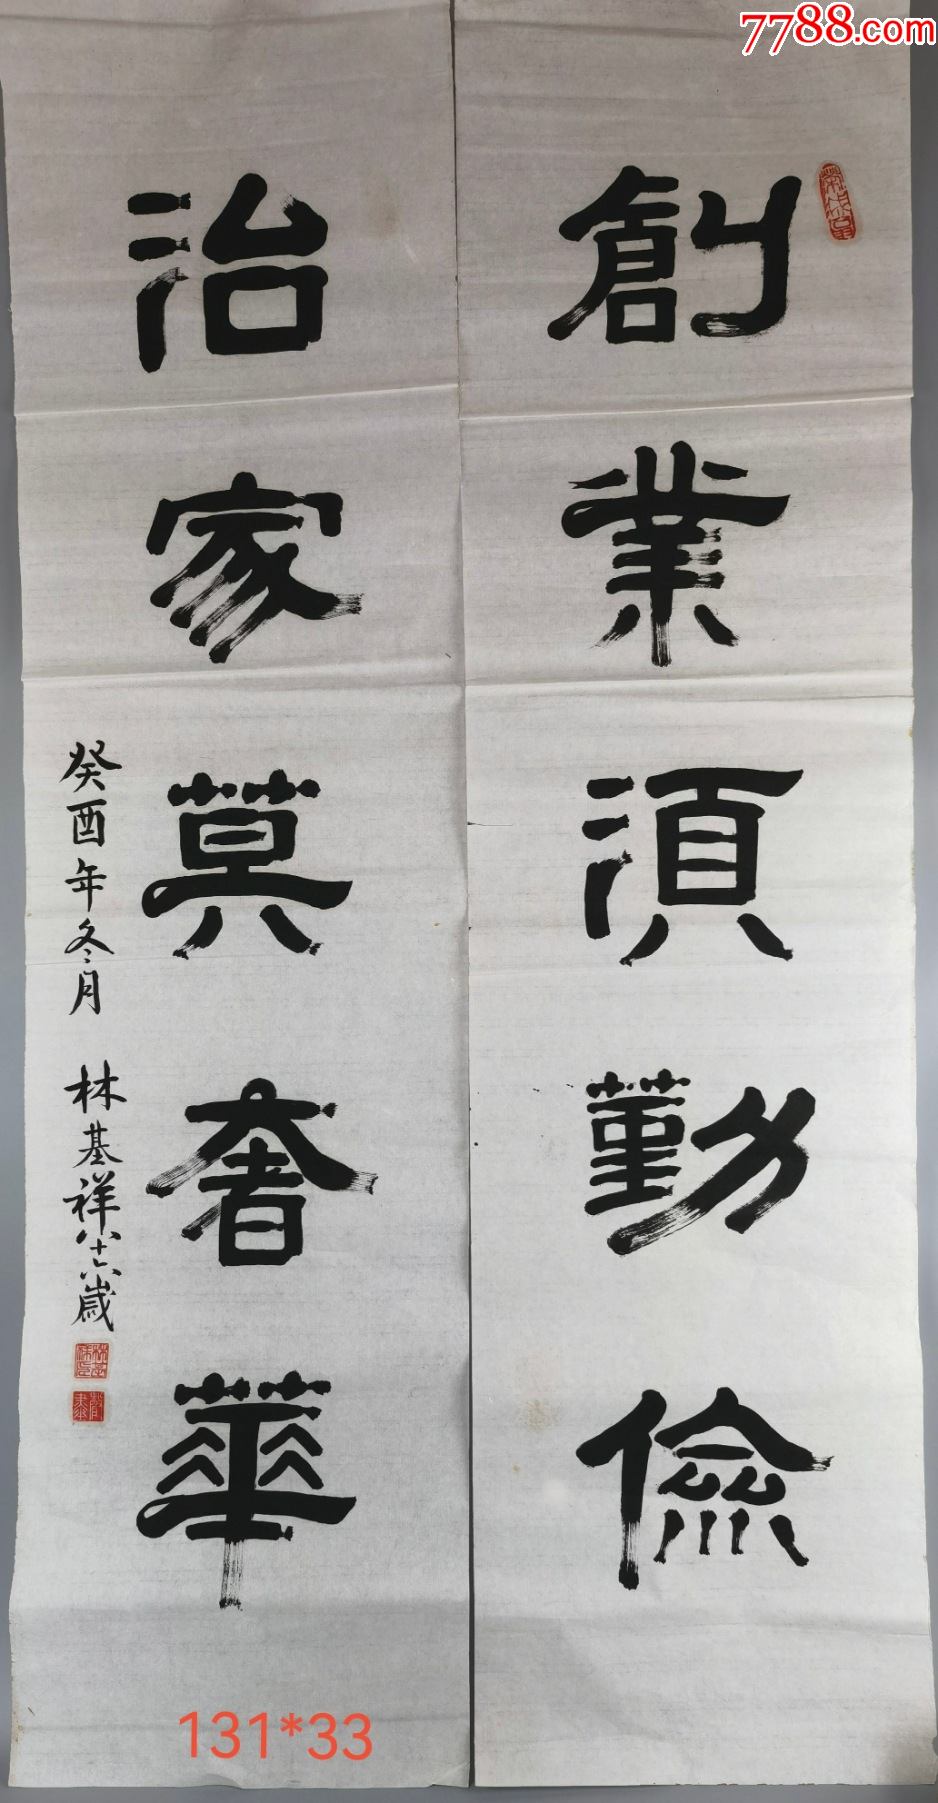 7788.com
創業須勤儉
治家莫奢華
癸酉年冬月 林基祥八十六歲
131*33